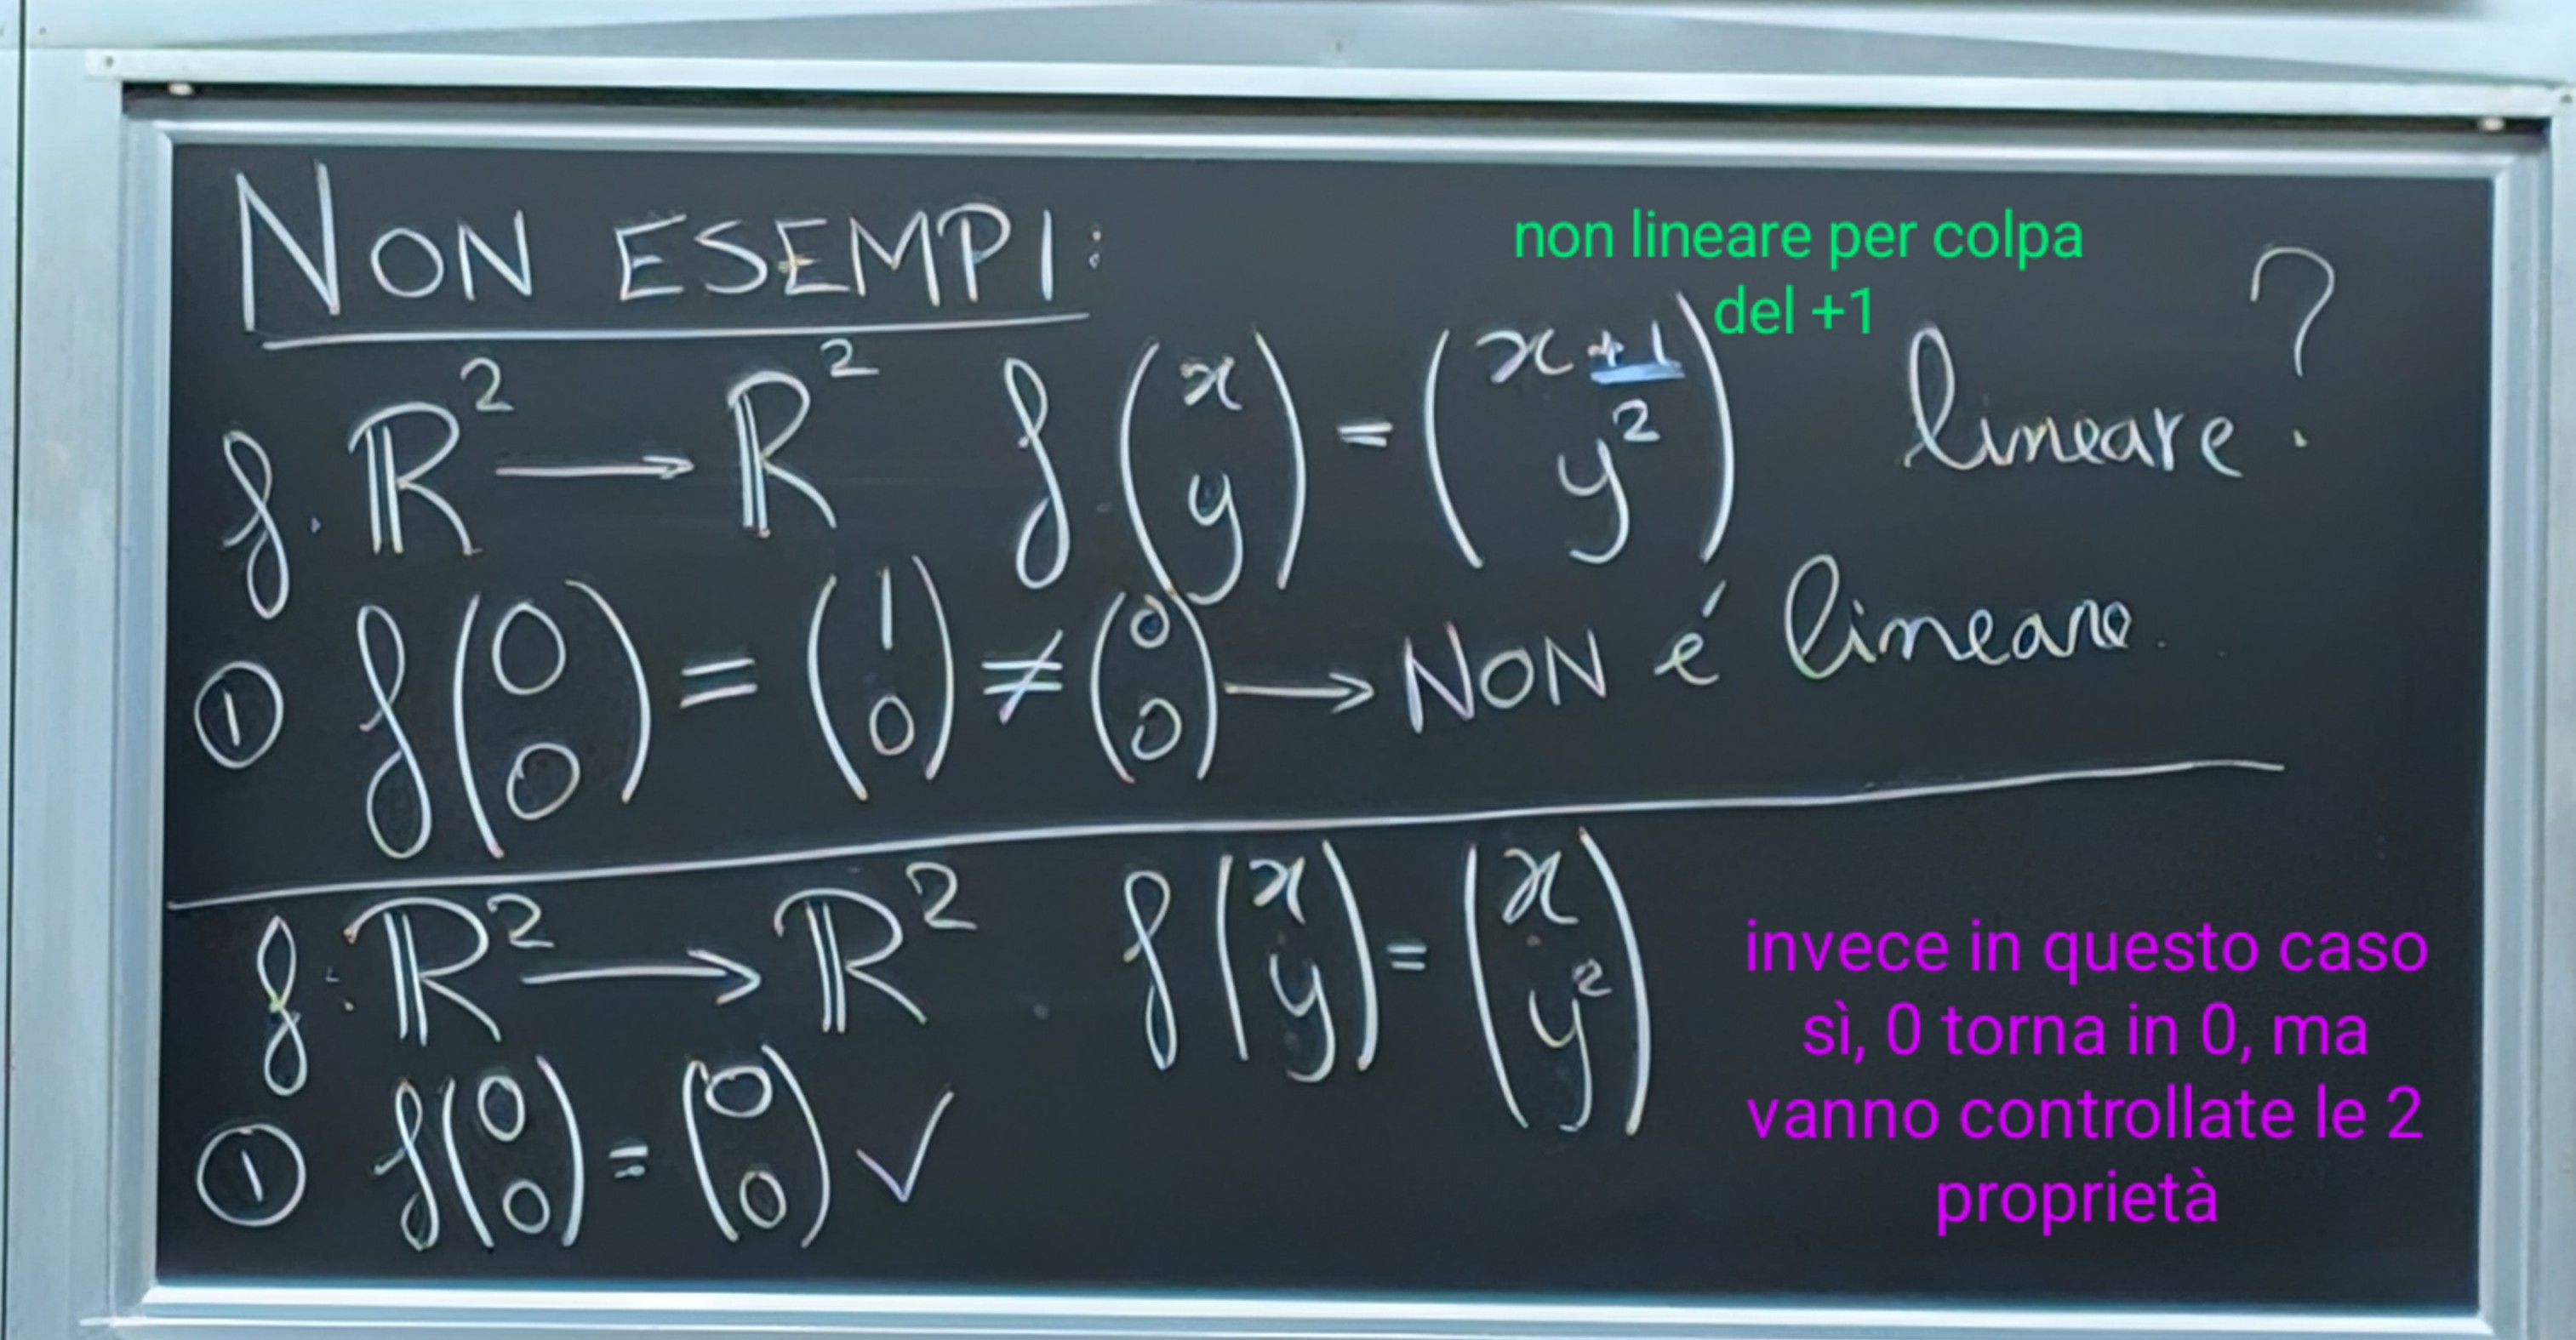 NON ESEMPI:
non lineare per colpa
del +1
f: ℝ² ⟶ ℝ² f(x y) = (x+1 y²) lineare?
① f(0 0) = (1 0) ≠ (0 0) ⟶ NON é lineare.
f: ℝ² ⟶ ℝ² f(x y) = (x y²)
invece in questo caso
sì, 0 torna in 0, ma
vanno controllate le 2
proprietà
① f(0 0) = (0 0) ✓